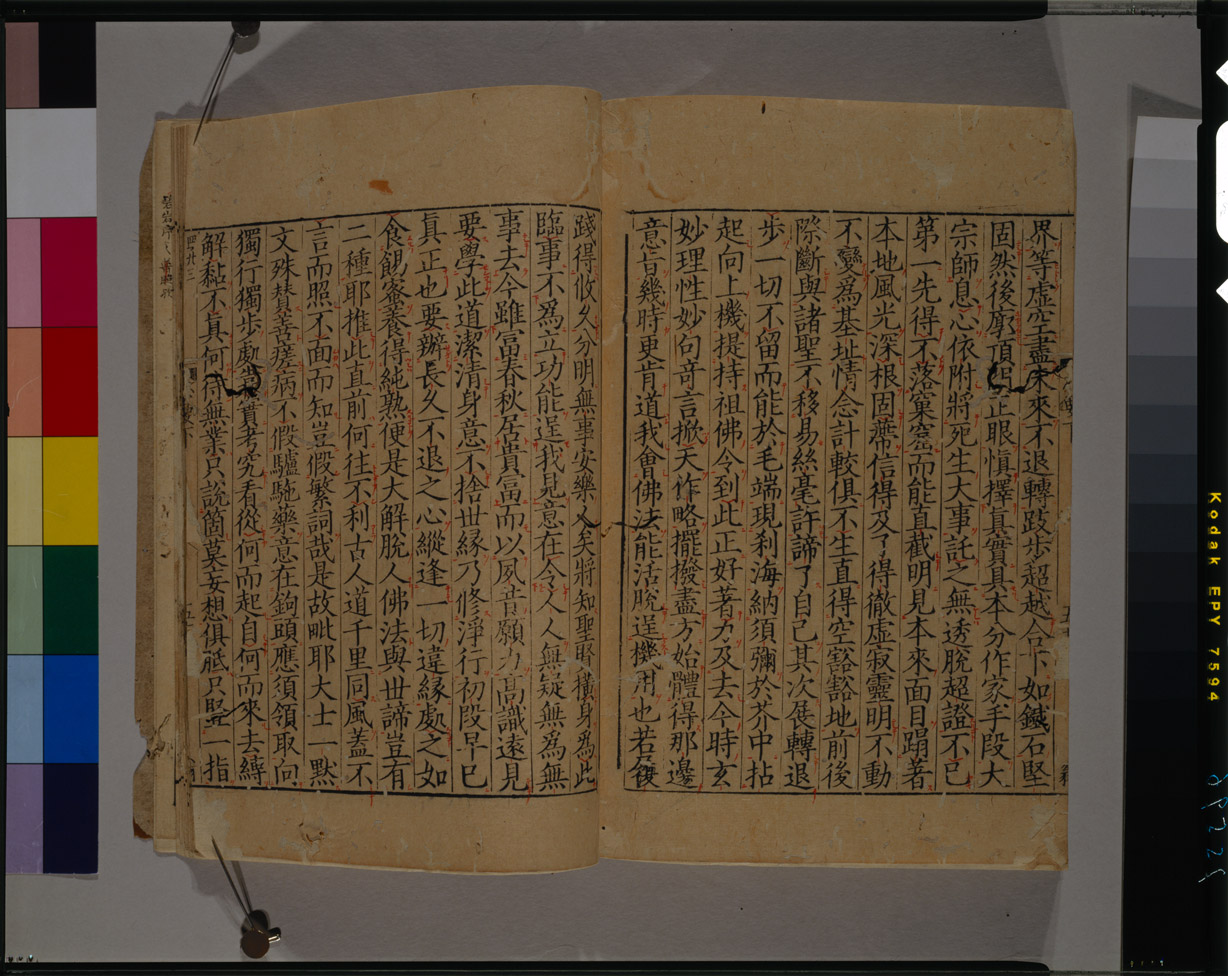 界等虛空盡未來不退轉跂步超越合下如鐵石堅
固然後廓頂門正眼慎擇真實具本分作家手段大
宗師息心依附將死生大事託之無透脫超證不已
第一先得不落窠窟而能直截明見本來面目蹋著
本地風光深根固蔕信得及了得徹虛寂靈明不動
不變爲基址情念計較俱不生直得空豁豁地前後
際斷與諸聖不移易絲毫許諦了自己其次展轉退
步一切不留而能於毛端現剎海納須彌於芥中拈
起向上機提持祖佛令到此正好著力及去今時玄
妙理性妙句奇言掀天作略擺撥盡方始體得那邊
意旨幾時更肯道我會佛法能活脫逞機用也若
踐得攸久分明無事安樂人矣將知聖賢橫身爲此
臨事不爲立功能逞我見意在令人人無疑無爲無
事去今雖富春秋居貴富而以夙昔願力高識遠見
要學此道潔清身意不捨世緣乃修淨行初段早已
真正也要辦長久不退之心縱逢一切違緣處之如
食餳蜜養得純熟便是大解脫人佛法與世諦豈有
二種耶推此直前何往不利古人道千里同風蓋不
言而照不面而知豈假繁詞哉是故毗耶大士一默
文殊賛善瘥病不假驢馳藥意在鉤頭應須領取向
獨行獨步處密實考究看從何而起自何而來去縛
解黏不真何待無業只說箇莫妄想俱胝只豎一指
Kodak EPY 7594